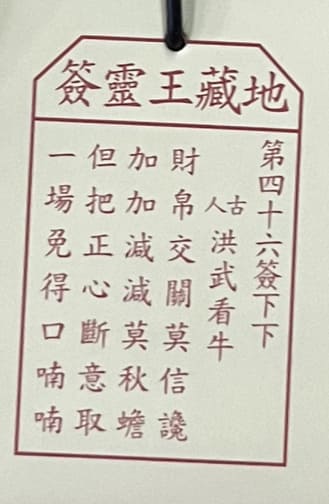 地藏王靈簽
第四十六簽下下
古人
洪武看牛
財帛交關莫信讒
加加減減莫秋蟾
但把正心斷意取
一場免得口喃喃